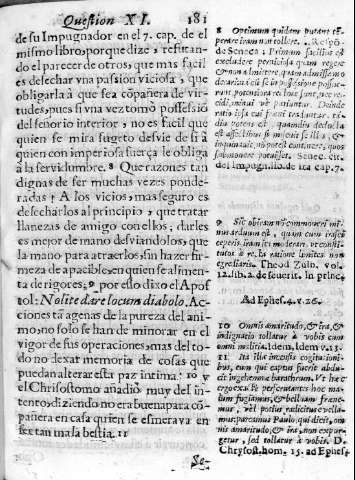 Question XI. 181
de su Impugnador en el 7. cap. de el
mismo libro; porque dize; refutan-
do el parecer de otros, que mas facil
es desechar vna passion viciosa, que
obligarla à que sea cõpañera de vir-
tudes, pues si vna vez tomò possessiõ
del señorio interior, no es facil que
quien se mira sugeto desvie de si à
quien con imperiosa fuerça le obliga
à la servidumbre. 8 Que razones tan
dignas de ser muchas vezes ponde-
radas! A los vicios, mas seguro es
desecharlos al principio, que tratar
llanezas de amigo con ellos; darles
es mejor de mano desviandolos, que
la mano para atraerlos, sin hazer fir-
meza de apacible, en quien se alimen-
ta de rigores, 9 por esso dixo el Apos-
tol: Nolite dare locum diabolo. Ac-
ciones tã agenas de la pureza del ani-
mo, no solo se han de minorar en el
vigor de sus operaciones, mas del to-
do no dexar memoria de cosas que
puedan alterar esta paz intima: 10 y
el Chrisostomo añadiò muy del in-
tento, diziendo no era buena para cõ-
pañera en casa quien se esmerava en
ser tan mala bestia. 11
Se-
8 Optimum quidam putant tẽ-
perare iram non tollere. Respõ-
de Seneca: Primum facilius est
excludere perniciosa quam regere
& non admittere, quam admissa mo-
derari: nã cũ se in possessione posue-
runt, potentiora rectore sunt, nec re-
cidi, minui vè patiuntur. Deinde
ratio ipsa cui fræni traduntur, tã
diu potens est quandiu deducta
est affectibus si miscuit se illis, &
inquinavit, nõ potest continere, quos
submovere potuisset. Senec. cit.
del Impugnado, de ira cap. 7.
9 Sic obiram nõ commoveri mi-
nus arduum est, quam cum irasci
ceperis, iram ita moderari, ut consti-
tuta à re, la ratione limites non
egrediatur. Theod. Zuin. vol.
12. lib. 2. de severit. in princ.
Ad Ephes. 4. v. 26.
10 Omnis amaritudo, & ira, &
indignatio tollatur à vobis cum
omni malitia. Idem, Idem v. 31.
11 Ita illa immissis cogitationi-
bus, cum qui captus fuerit abdu-
cit in gehennæ barathrum. Vt hæc
ergo ex Sè perseverantes hoc ma-
lum fugiamus, & belluam frene-
mus, vel potius radicitus evella-
mus; pareamus Paulo, qui dicit, om-
nis amaritudo, & ira, non expur-
getur, sed tollatur à vobis. D.
Chrysost. hom. 15. ad Ephes.